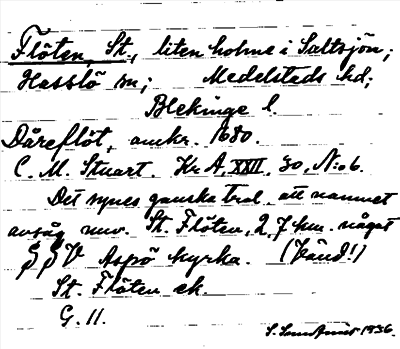 Flöten, St., liten holme i Saltsjön;
Hasslö sn; Medelstads hd;
Blekinge l.
Dåreflöt, omkr. 1680.
C. M. Stuart. Kr. A. XXII, 30, N:o 6.
Det synes ganska trol. att namnet
avsåg nuv. St. Flöten, 2,7 km. något
S S V Aspö kyrka. (Vänd!)
St. Flöten ek.
G. 11.
1936.